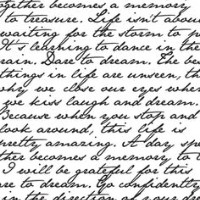 ogether becomes a memory
to treasure. Life isn't about
waiting for the storm to p
It's learning to dance in the
rain. Dare to dream. The be
things in life are unseen, th
why we close our eyes when
we kiss laugh and dream.
Because when you stop and
look around, this life is
pretty amazing. A day spe
ther becomes a memory to t
I will be grateful for this
are to dream. Go confidently
in the direction of your dream